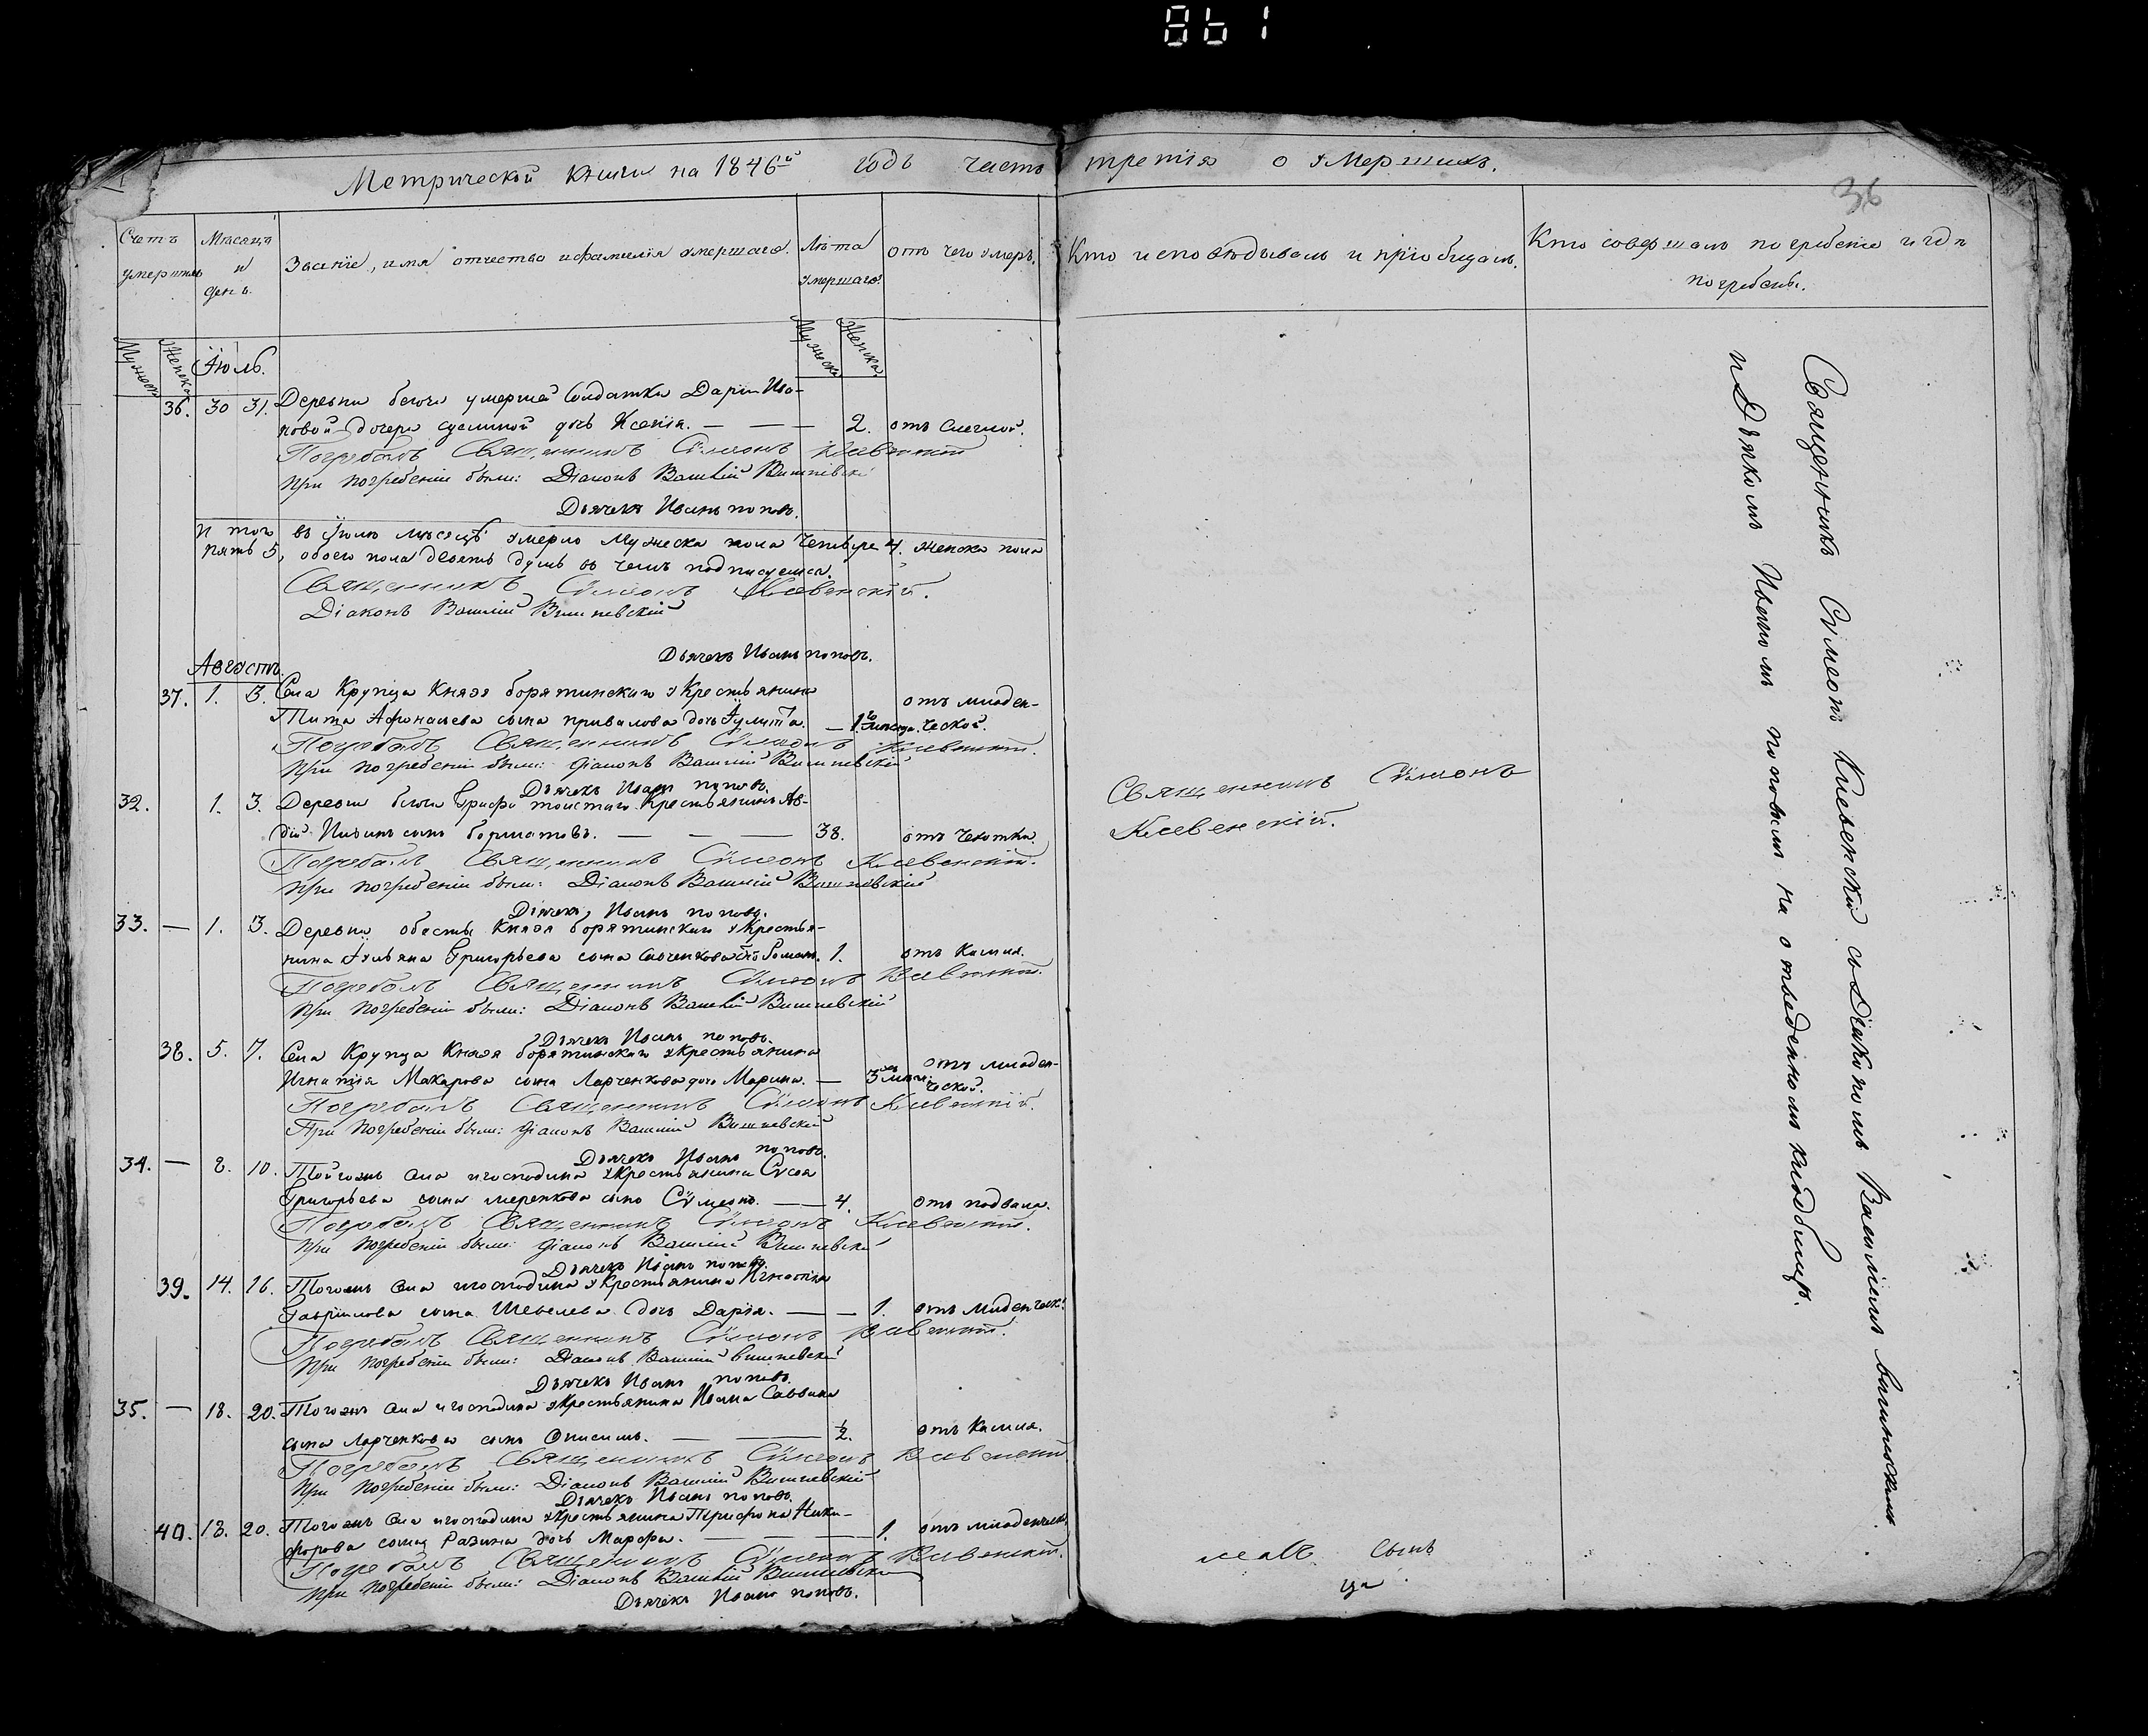 1981
Метрической книги на 1846й годъ часть третія о умершихъ.
36
Счетъ умершихъ
Мѣсяцъ и день.
Званіе, имя отчество и фамилія умершаго.
Лѣта умершаго.
отъ чего умеръ.
Кто исповѣдывалъ и пріобщалъ.
Кто совершалъ погребеніе и гдѣ
погребены.
Мужеска
Женска
Іюль.
Мужеска
Женска
36. 30 31. Деревни умершей Солдатки Даріи Ива-
новой дочери дочь Ксенія. — — — 2. отъ
Погребалъ Священникъ Сѵмеонъ Клевенскій
При погребеніи были: Діаконъ Василій Вишневскій
Дьячекъ Иванъ Поповъ.
Итого въ Іюлѣ мѣсяцѣ умерло Мужеска пола Четыре 4. женска пола
пять 5, обоего пола девять душъ въ чемъ подписуемся.
Священникъ Сѵмеонъ Клевенскій.
Діаконъ Василій Вишневскій
Дьячекъ Иванъ Поповъ.
Августъ
37. 1. 3. Села Крупца Князя борятинскаго у Крестьянина отъ младен-
Тита Афонасьева сына привалова дочь Іулитта. — ческой.
Погребалъ Священникъ Сѵмеонъ Клевенскій.
При погребеніи были: Діаконъ Василій Вишневскій
Дьячекъ Иванъ Поповъ.
32. 1. 3. Деревни Графа толстаго Крестьянинъ Ав-
дій сынъ — — 38. отъ Чехотки.
Погребалъ Священникъ Сѵмеонъ Клевенскій.
При погребеніи были: Діаконъ Василій Вишневскій
Дьячекъ Иванъ Поповъ.
Священникъ Сѵмеонъ
Клевенскій.
33. — 1. 3. Деревни Князя борятинскаго у Крестья-
нина Григорьева сына 1. отъ Кашля.
Погребалъ Священникъ Сѵмеонъ Клевенскій.
При погребеніи были: Діаконъ Василій Вишневскій
Дьячекъ Иванъ Поповъ.
38. 5. 7. Села Крупца Князя борятинскаго у Крестьянина отъ младен-
Игнатія Макарова сына Ларченкова дочь Марина. — 3 ческой.
Погребалъ Священникъ Сѵмеонъ Клевенскій.
При погребеніи были: Діаконъ Василій Вишневскій
Дьячекъ Иванъ Поповъ.
34. — 8. 10. Тогожъ Села и господина у Крестьянина Сѵсоя
Григорьева сына меренкова сынъ Сѵмеонъ. — — 4. отъ
Погребалъ Священникъ Сѵмеонъ Клевенскій.
При погребеніи были: Діаконъ Василій Вишневскій
Дьячекъ Иванъ Поповъ.
39. 14. 16. Тогожъ Села и господина у Крестьянина Игнатія
Гаврилова сына Шевелева дочь Дарія. — — 1. отъ Младенческ.
Погребалъ Священникъ Сѵмеонъ Клевенскій.
При погребеніи были: Діаконъ Василій вишневскій
Дьячекъ Иванъ Поповъ.
35. — 18. 20. Тогожъ Села и господина у Крестьянина Ивана Саввина
сына Ларченкова сынъ Онисимъ. — — ½. отъ Кашля.
Погребалъ Священникъ Сѵмеонъ Клевенскій
При погребеніи были: Діаконъ Василій Вишневскій
Дьячекъ Иванъ Поповъ.
40. 18. 20. Тогожъ Села и господина у Крестьянина Трифона Ники-
форова сына Разина дочь Марфа. — — 1. отъ младенческ.
Погребалъ Священникъ Сѵмеонъ Клевенскій.
При погребеніи были: Діаконъ Василій Вишневскій
Дьячекъ Иванъ Поповъ.
Священникъ Сѵмеонъ Клевенскій съ Діакономъ Василіемъ вишневскимъ
и Дьячкомъ Иваномъ поповымъ на отведенномъ кладбищѣ.
сынъ
ца